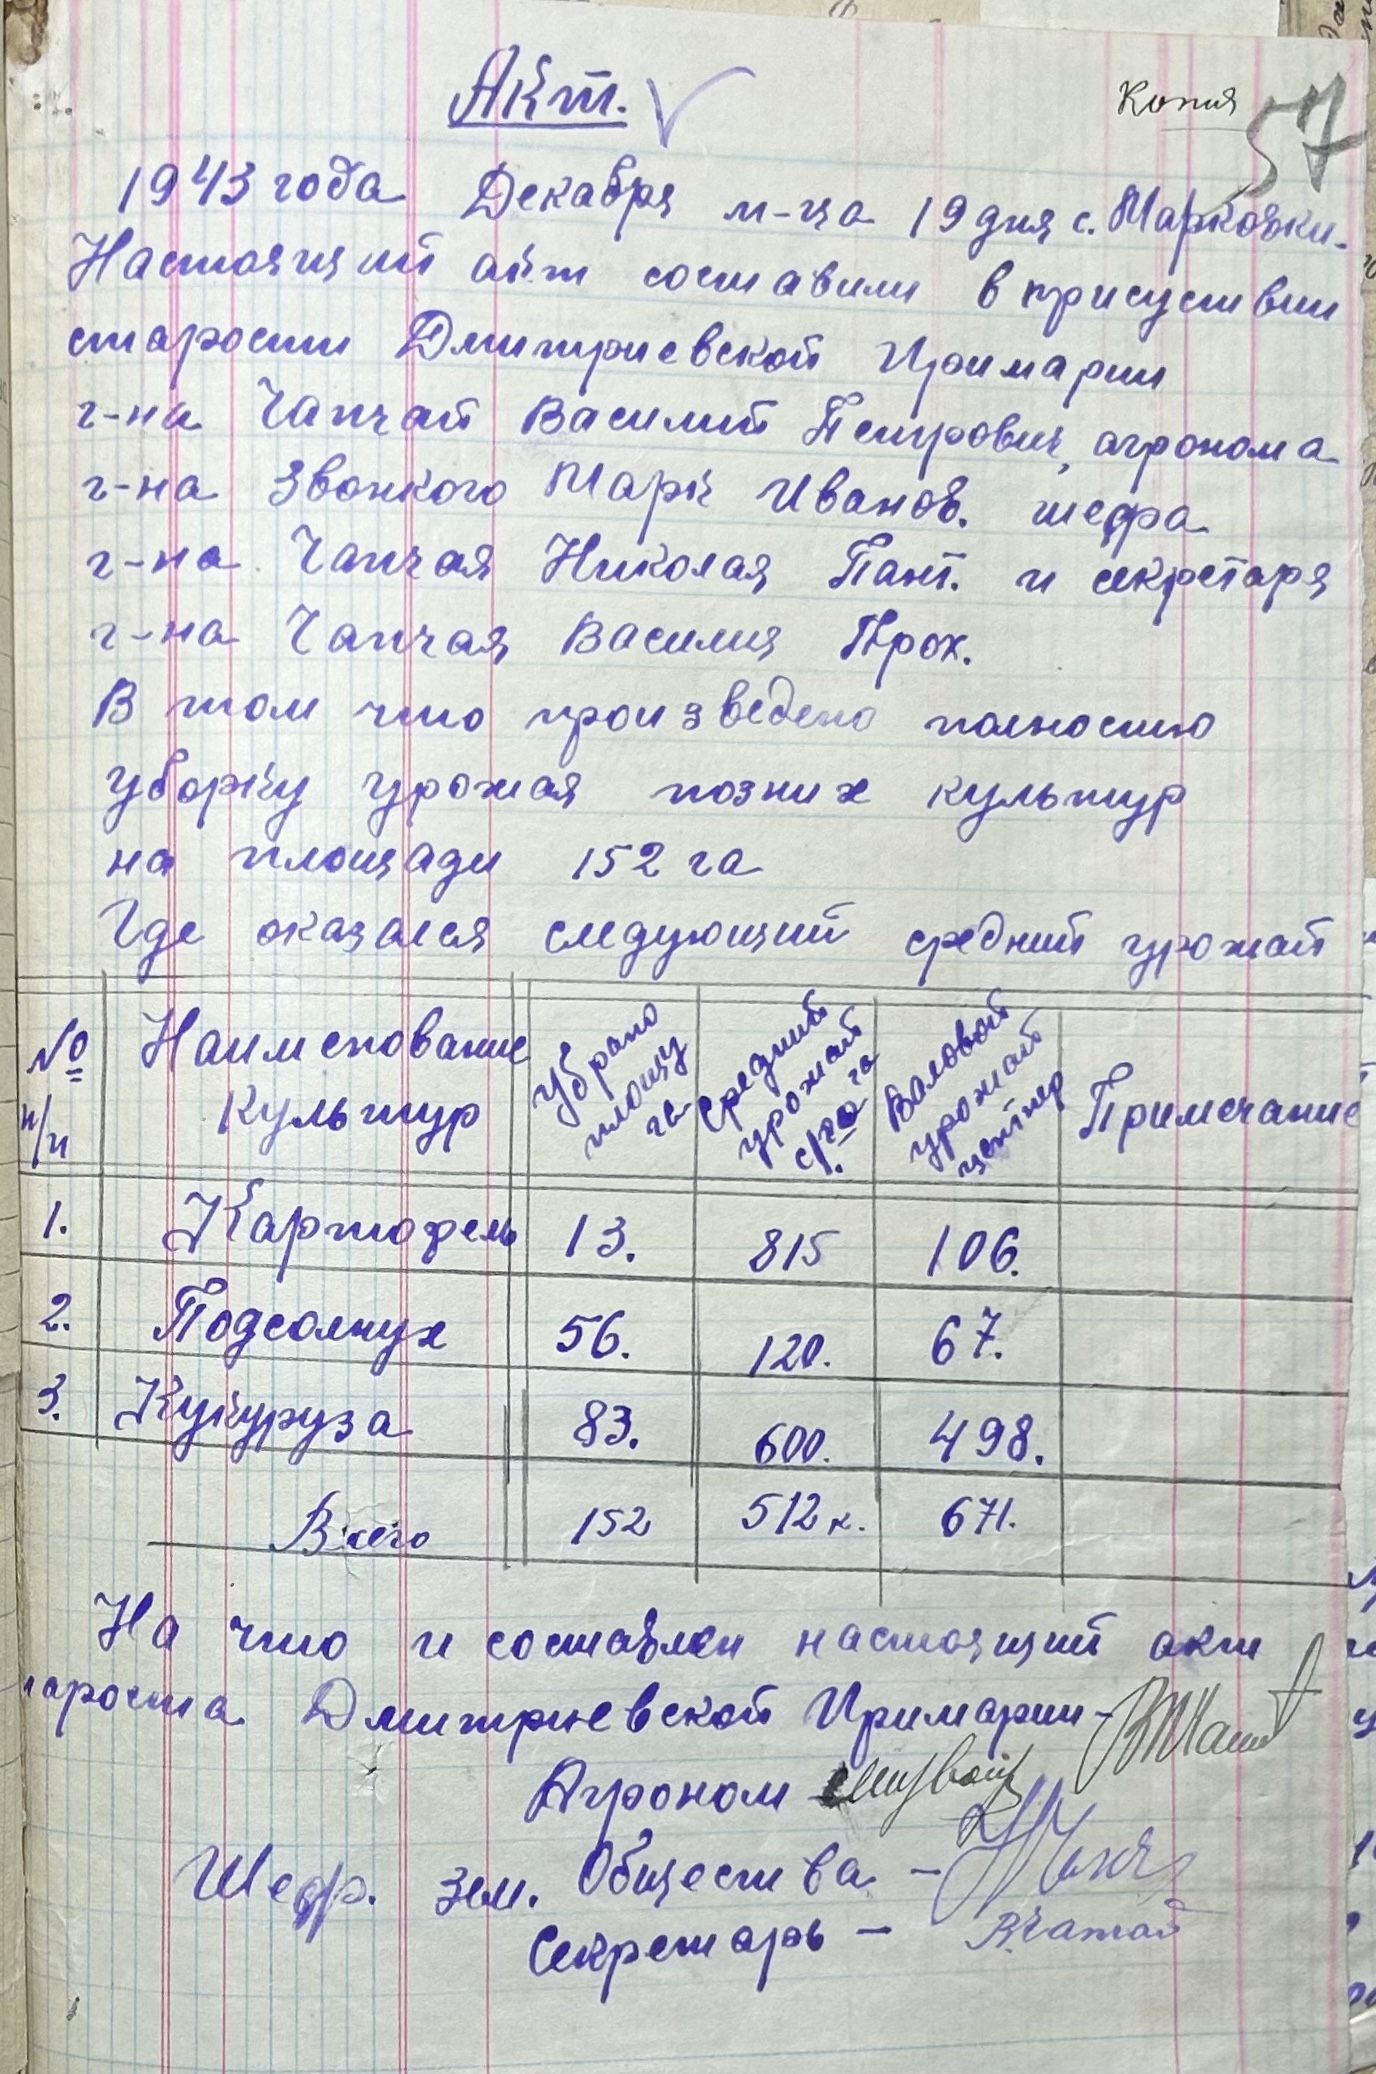 Акт.
Копия
57
1943 года Декабря м-ца 19 дня с. Марковки.
Настоящий акт составили в присуствии
старости Дмитриевской Примарии
г-на Чапчай Василий Петрович, агронома
г-на Звонкого Марк Иванов. шефра
г-на Чапчая Николая Пант. и секретаря
г-на Чапчая Василия Прох.
В том что произведено полностю
уборку урожая позних культур
на площади 152 га
Где оказался следующий средний урожай
№ п/п | Наименование Культур | Убрано площу га | Средний урожай с/го га | Валовой урожай центнер | Примечание
1. Картофель 13. 815 106.
2. Подсолнух 56. 120. 67.
3. Кукуруза 83. 600. 498.
Всего 152 512 к. 671.
На что и составлен настоящий акт
тароста Дмитриевской Примарии-
Агроном
Шефр. зем. Общества -
Секретарь -